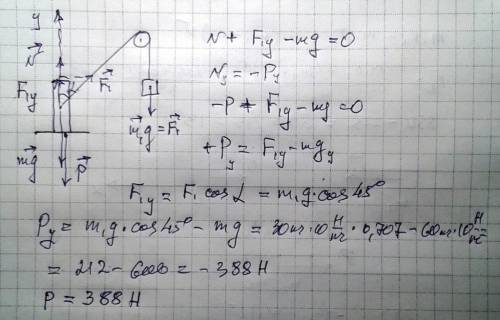 y
N
F₁y
F₁
mg
P
m₁g = F₁
N + F₁y − mg = 0
Ny = −Py
−P + F₁y − mg = 0
+Py = F₁y − mgy
F₁y = F₁ cos α = m₁g · cos 45°
Py = m₁g · cos 45° − mg = 30кг · 10 Н/кг · 0,707 − 60кг · 10 Н/кг =
= 212 − 600 = − 388 Н
P = 388 Н